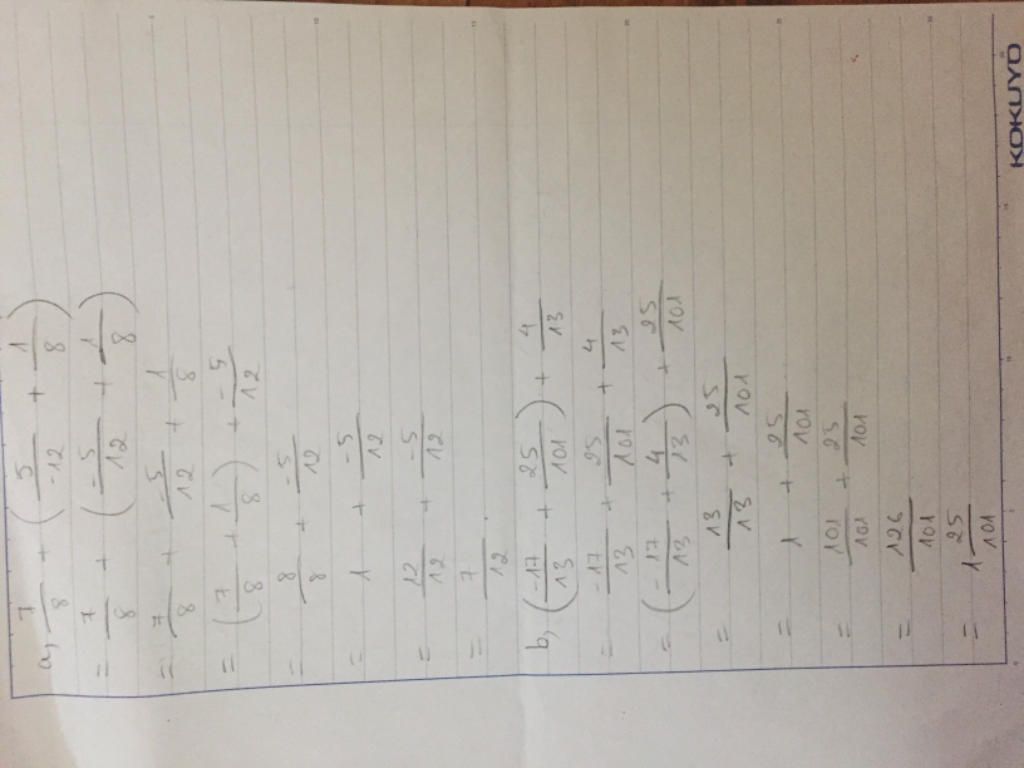 a, 7/8 + (5/-12 + 1/8)
= 7/8 + (-5/12 + 1/8)
= 7/8 + -5/12 + 1/8
= (7/8 + 1/8) + -5/12
= 8/8 + -5/12
= 1 + -5/12
= 12/12 + -5/12
= 7/12.
b, (-17/13 + 25/101) + 4/13
= -17/13 + 25/101 + 4/13
= (-17/13 + 4/13) + 25/101
= 13/13 + 25/101
= 1 + 25/101
= 101/101 + 25/101
= 126/101
= 1 25/101
KOKUYO